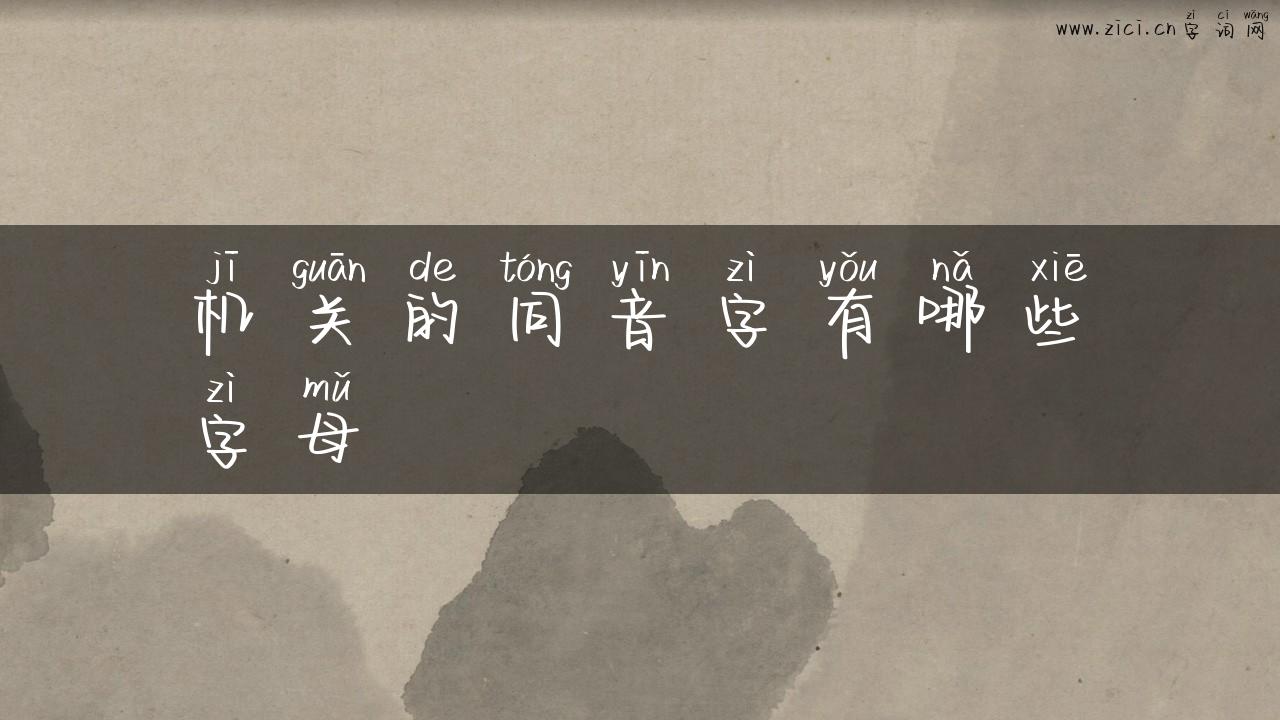 zì cí wǎng
www.zici.cn 字词网
jī guān de tóng yīn zì yǒu nǎ xiē
机关的同音字有哪些
zì mǔ
字母